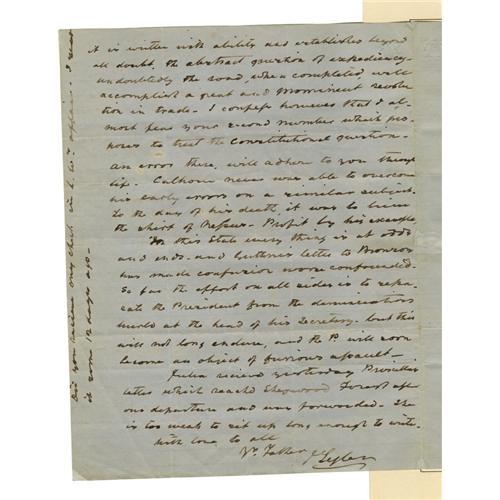 it is written with ability and establishes beyond
all doubt, the abstract question of expediency-
undoubtedly the road, when completed, will
accomplish a great and prominent revolu
tion in trade - I confess however that I al-
most fear your second number which pro-
poses to treat the Constitutional question -
An error there, will adhere to you through
life. Calhoun never was able to overcome
his early errors on a similar subject.
To the day of his death, it was to him
the shirt of Nessus - Profit by his example,
In this State every thing is at odds
and ends - and Guthrie's letter to Bronson
has made confusion worse confounded.
So far the effort on all sides is to sepa-
rate the President from the denunciations
hurled at the head of his Secretary. but this
will not long endure, and the P. will soon
become an object of furious assault -
Julia recieved yesterday Priscilla's
letter which reached Sherwood Forest after
our departure and was forwarded. She
is too weak to sit up long enough to write.
with love to all
Yr. Father
J Tyler
Did you recieve my check in
it some 12 days ago -